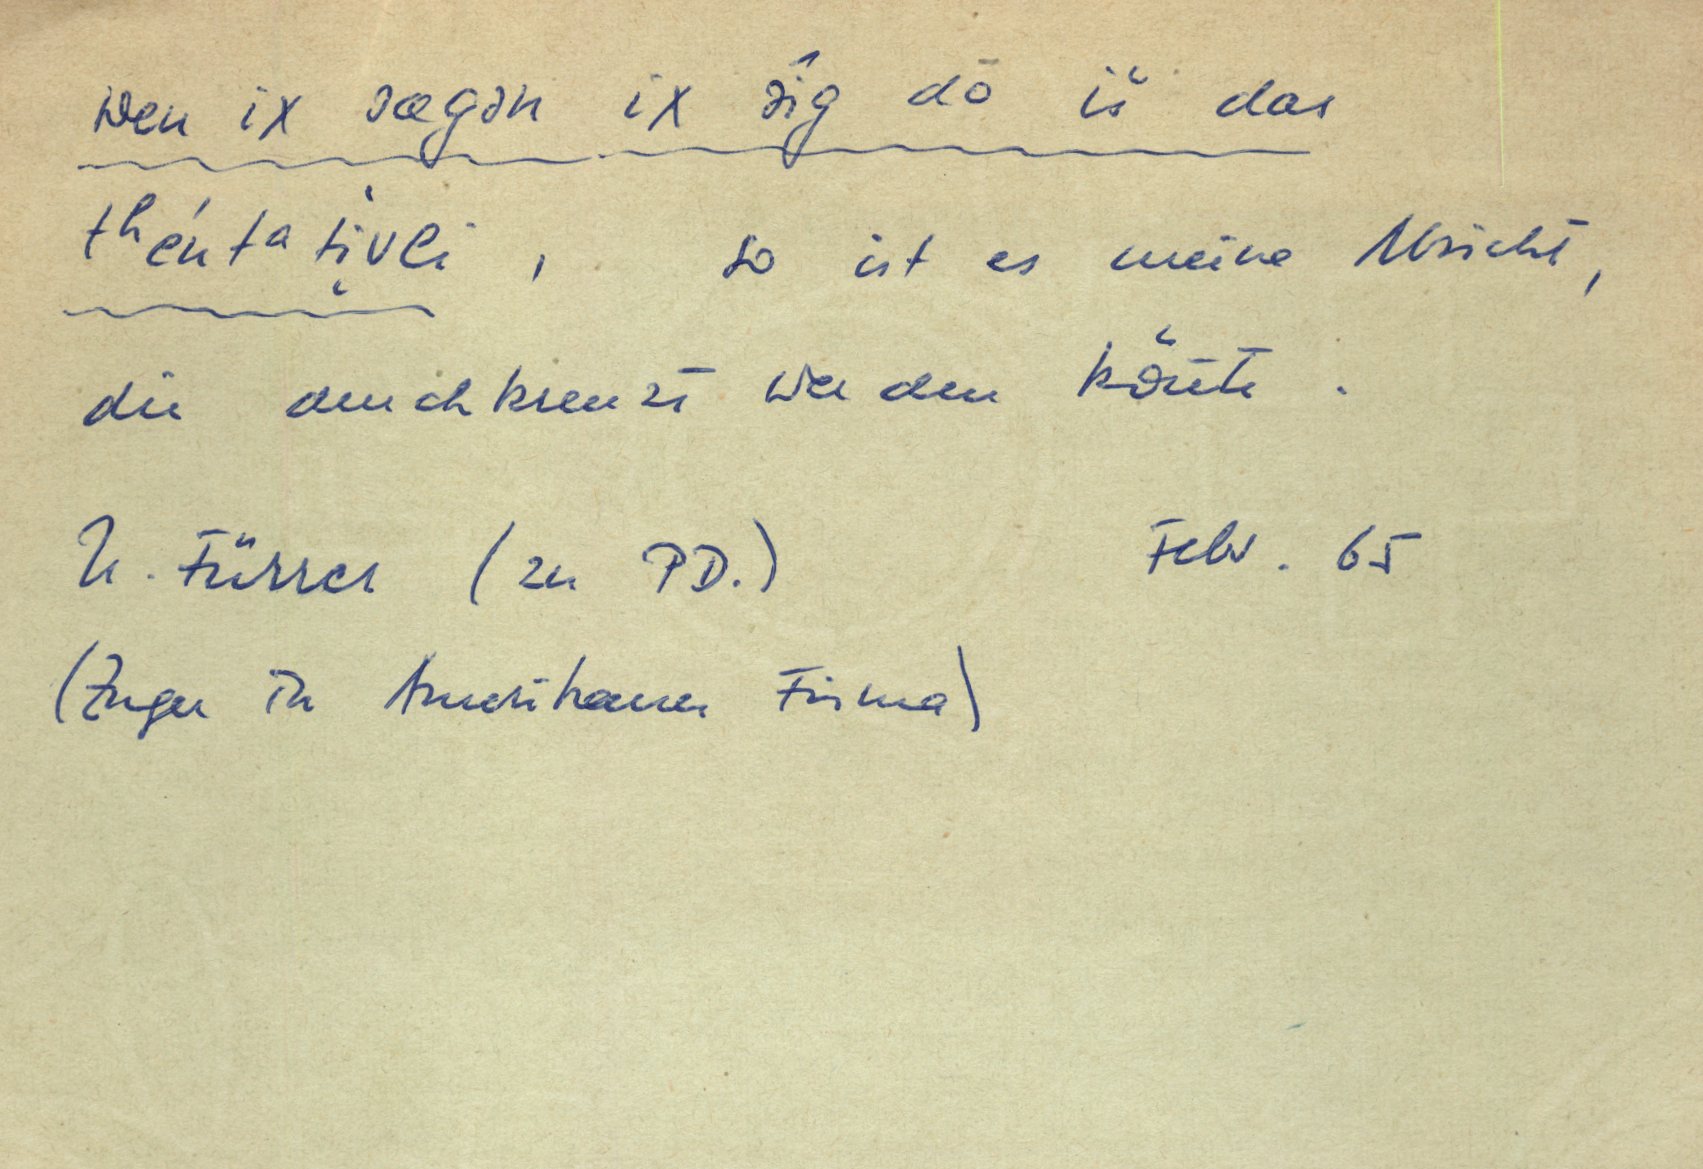 wen ix sægən ix sig dō iš das
tʰéntativli, so ist es meine Absicht,
die durchkreuzt werden könte.
H. Fürrer (zu PD.) Febr. 65
(Zuger in Amerikaner Firma)